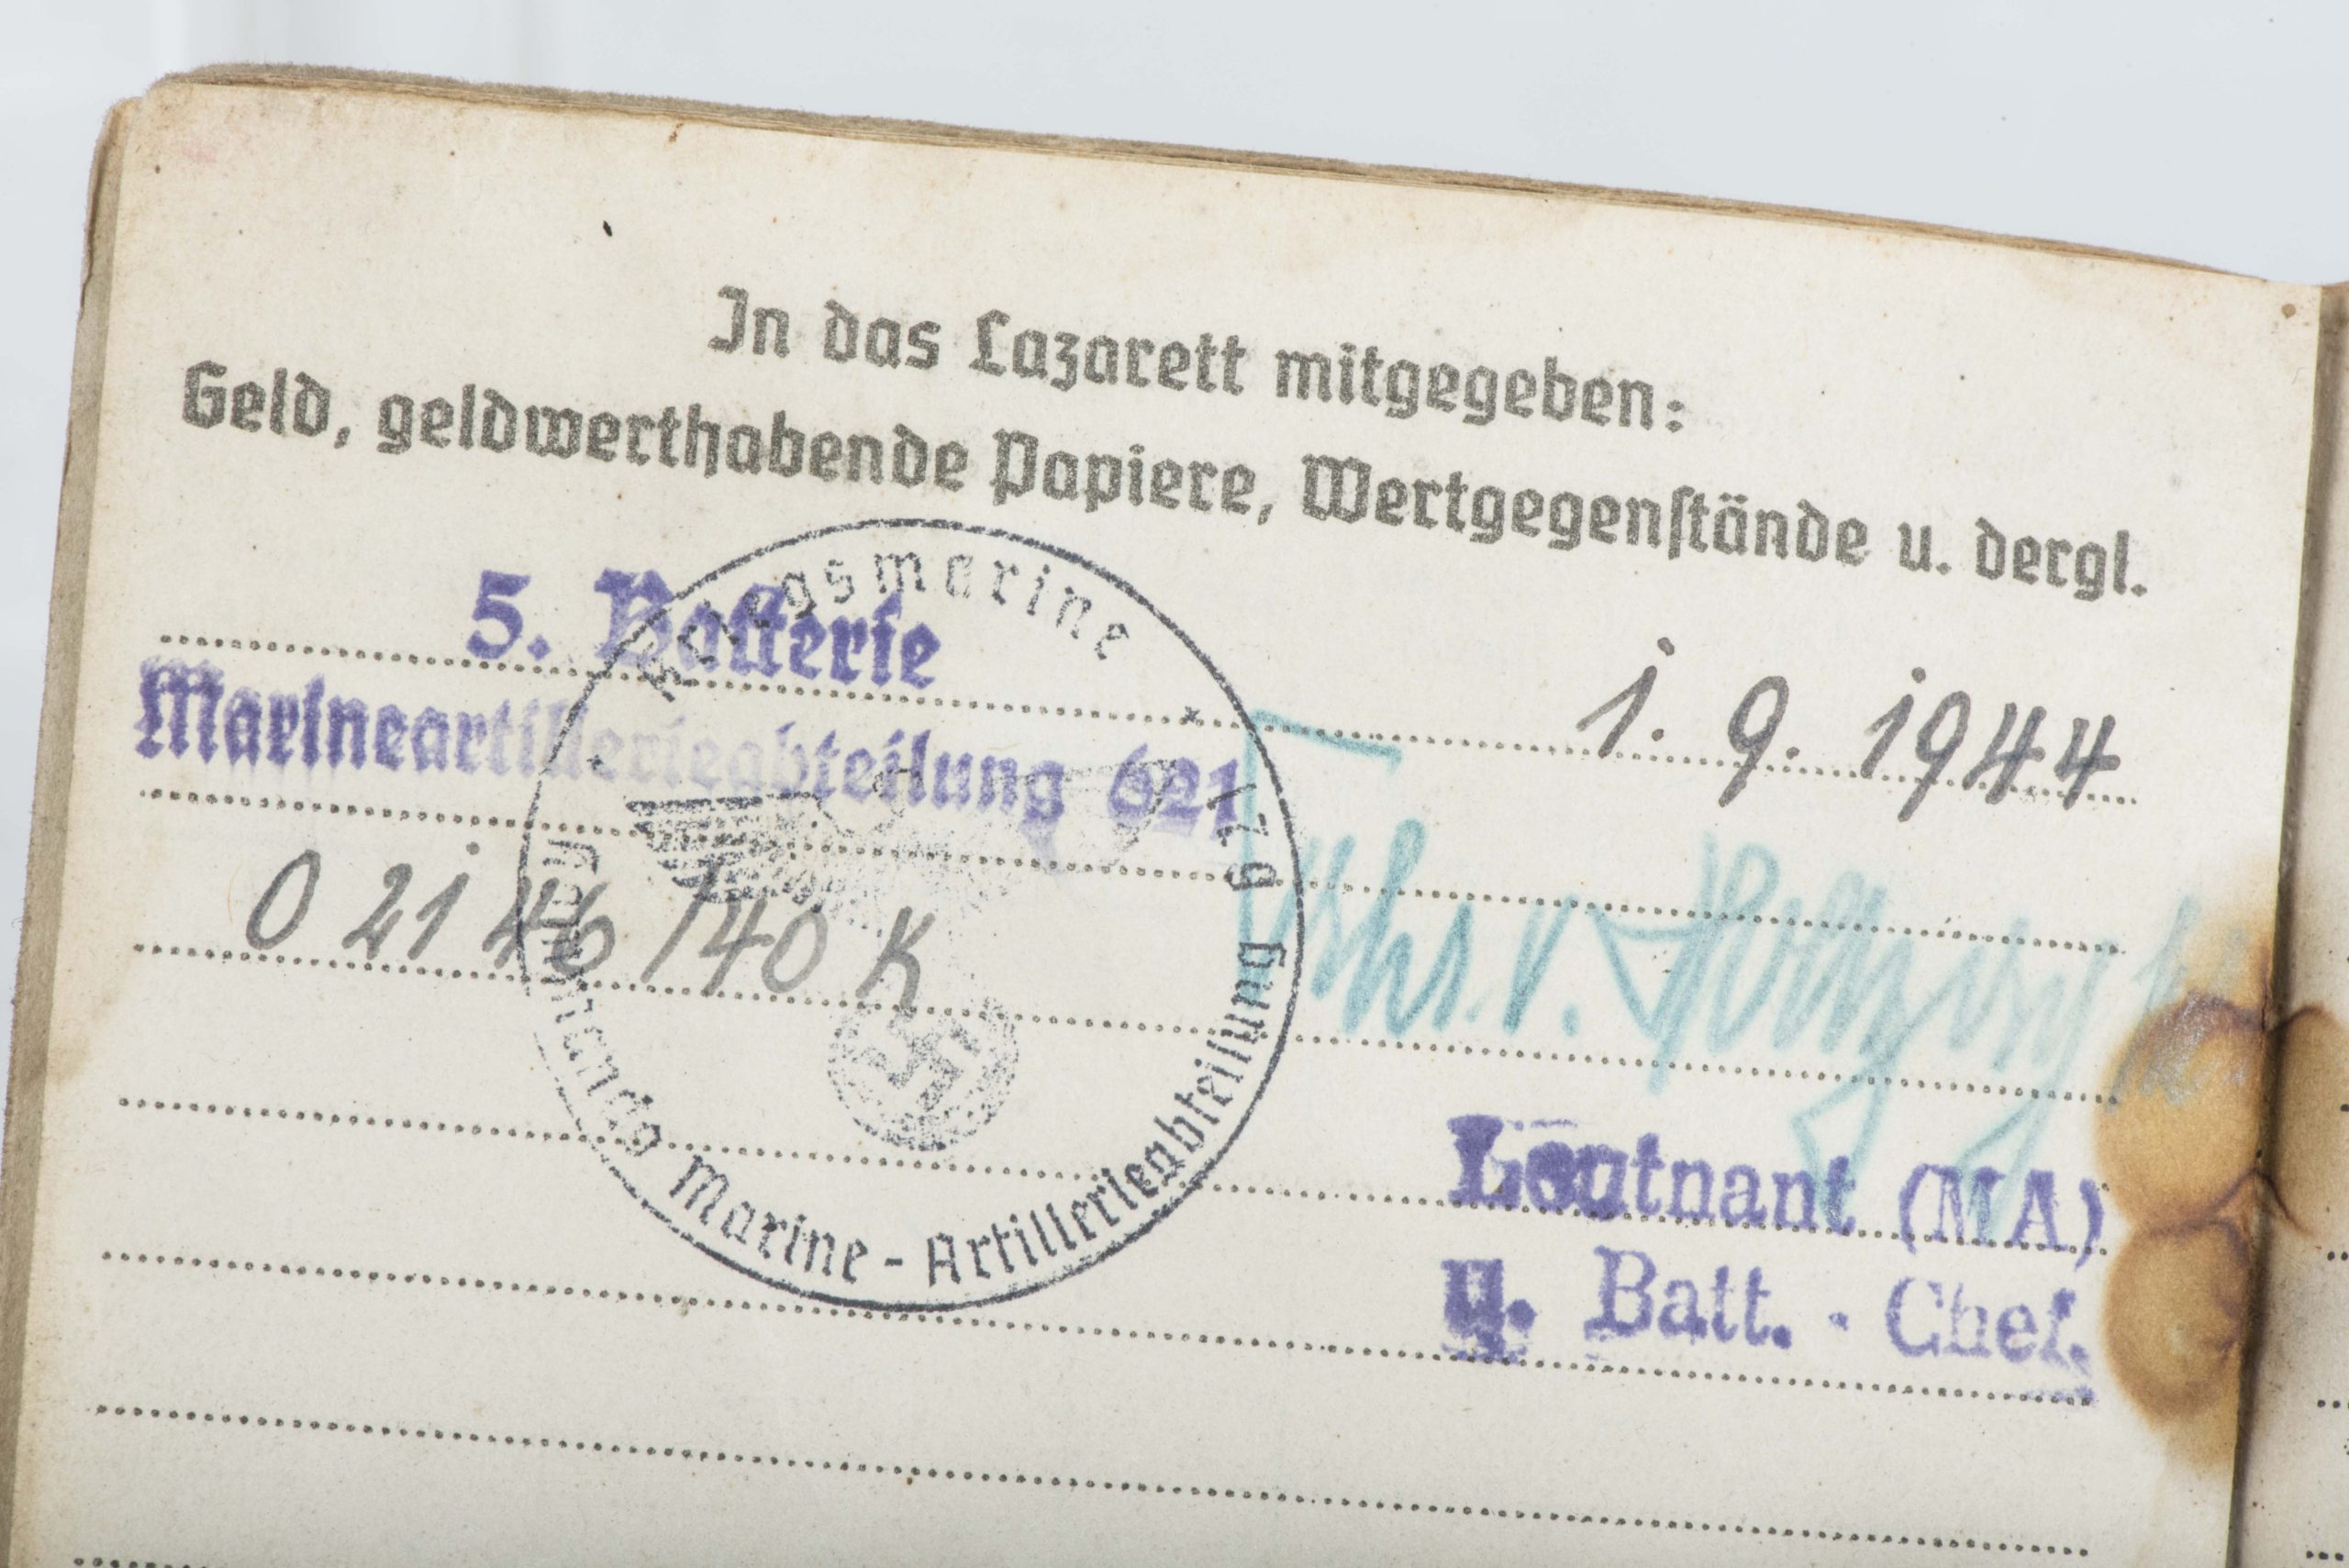 In das Lazarett mitgegeben:
Geld, geldwerthabende Papiere, Wertgegenstände u. dergl.
5. Batterie
Marineartillerieabteilung 621
1. 9. 1944
O 2146/40 K
Kriegsmarine
Kommando Marine-Artillerieabteilung 621
Frhr. v.
Leutnant (MA)
u. Batt.-Chef.